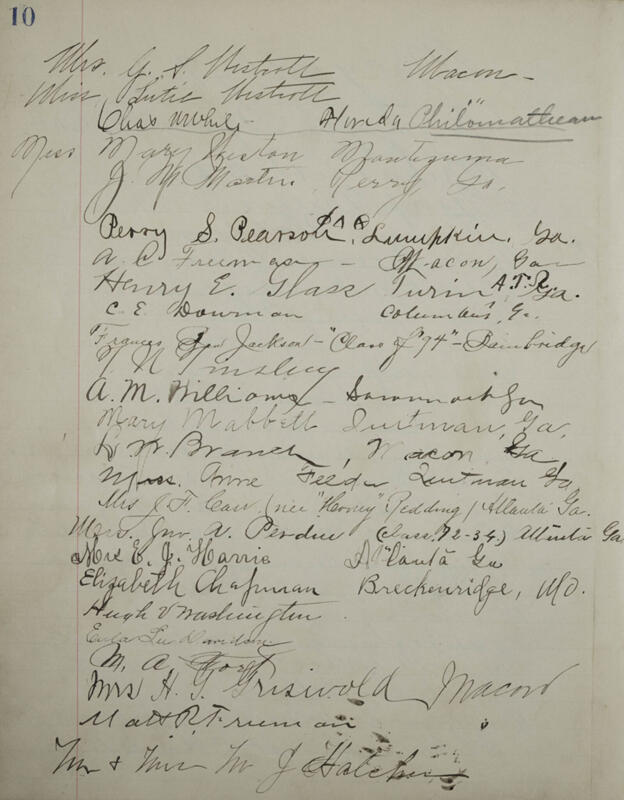 10
Mrs. G. S. Westcott Macon -
Miss Lutie Westcott "
Chas Florida Philomathean
Miss Mary Weston Montezuma
J. M. Martin Perry Ga.
Perry S. Pearson, Lumpkin, Ga.
A. C. Freeman - Macon, Ga
Henry E. Glass Turin, Ga.
C. E. Dowman Columbus, Ga.
Frances Jackson - "Class of '94" - Bainbridge
A. M. Williams - Ga
Mary Mabbett Quitman, Ga,
Branch, Macon Ga
Miss. Quitman Ga,
Mrs J. F. (nee "Honey" Redding) Atlanta Ga.
Mrs. Jno. A. Perdue (Class. 72-34.) Atlanta Ga
Mrs E. J. Harris Atlanta Ga
Elizabeth Chapman Breckenridge, Mo.
Hugh V Washington
Eula Lee Davidson
M. A.
Mrs H. T. Griswold Macon
Matt R. Freeman "
Mr & Mrs M J Hatcher